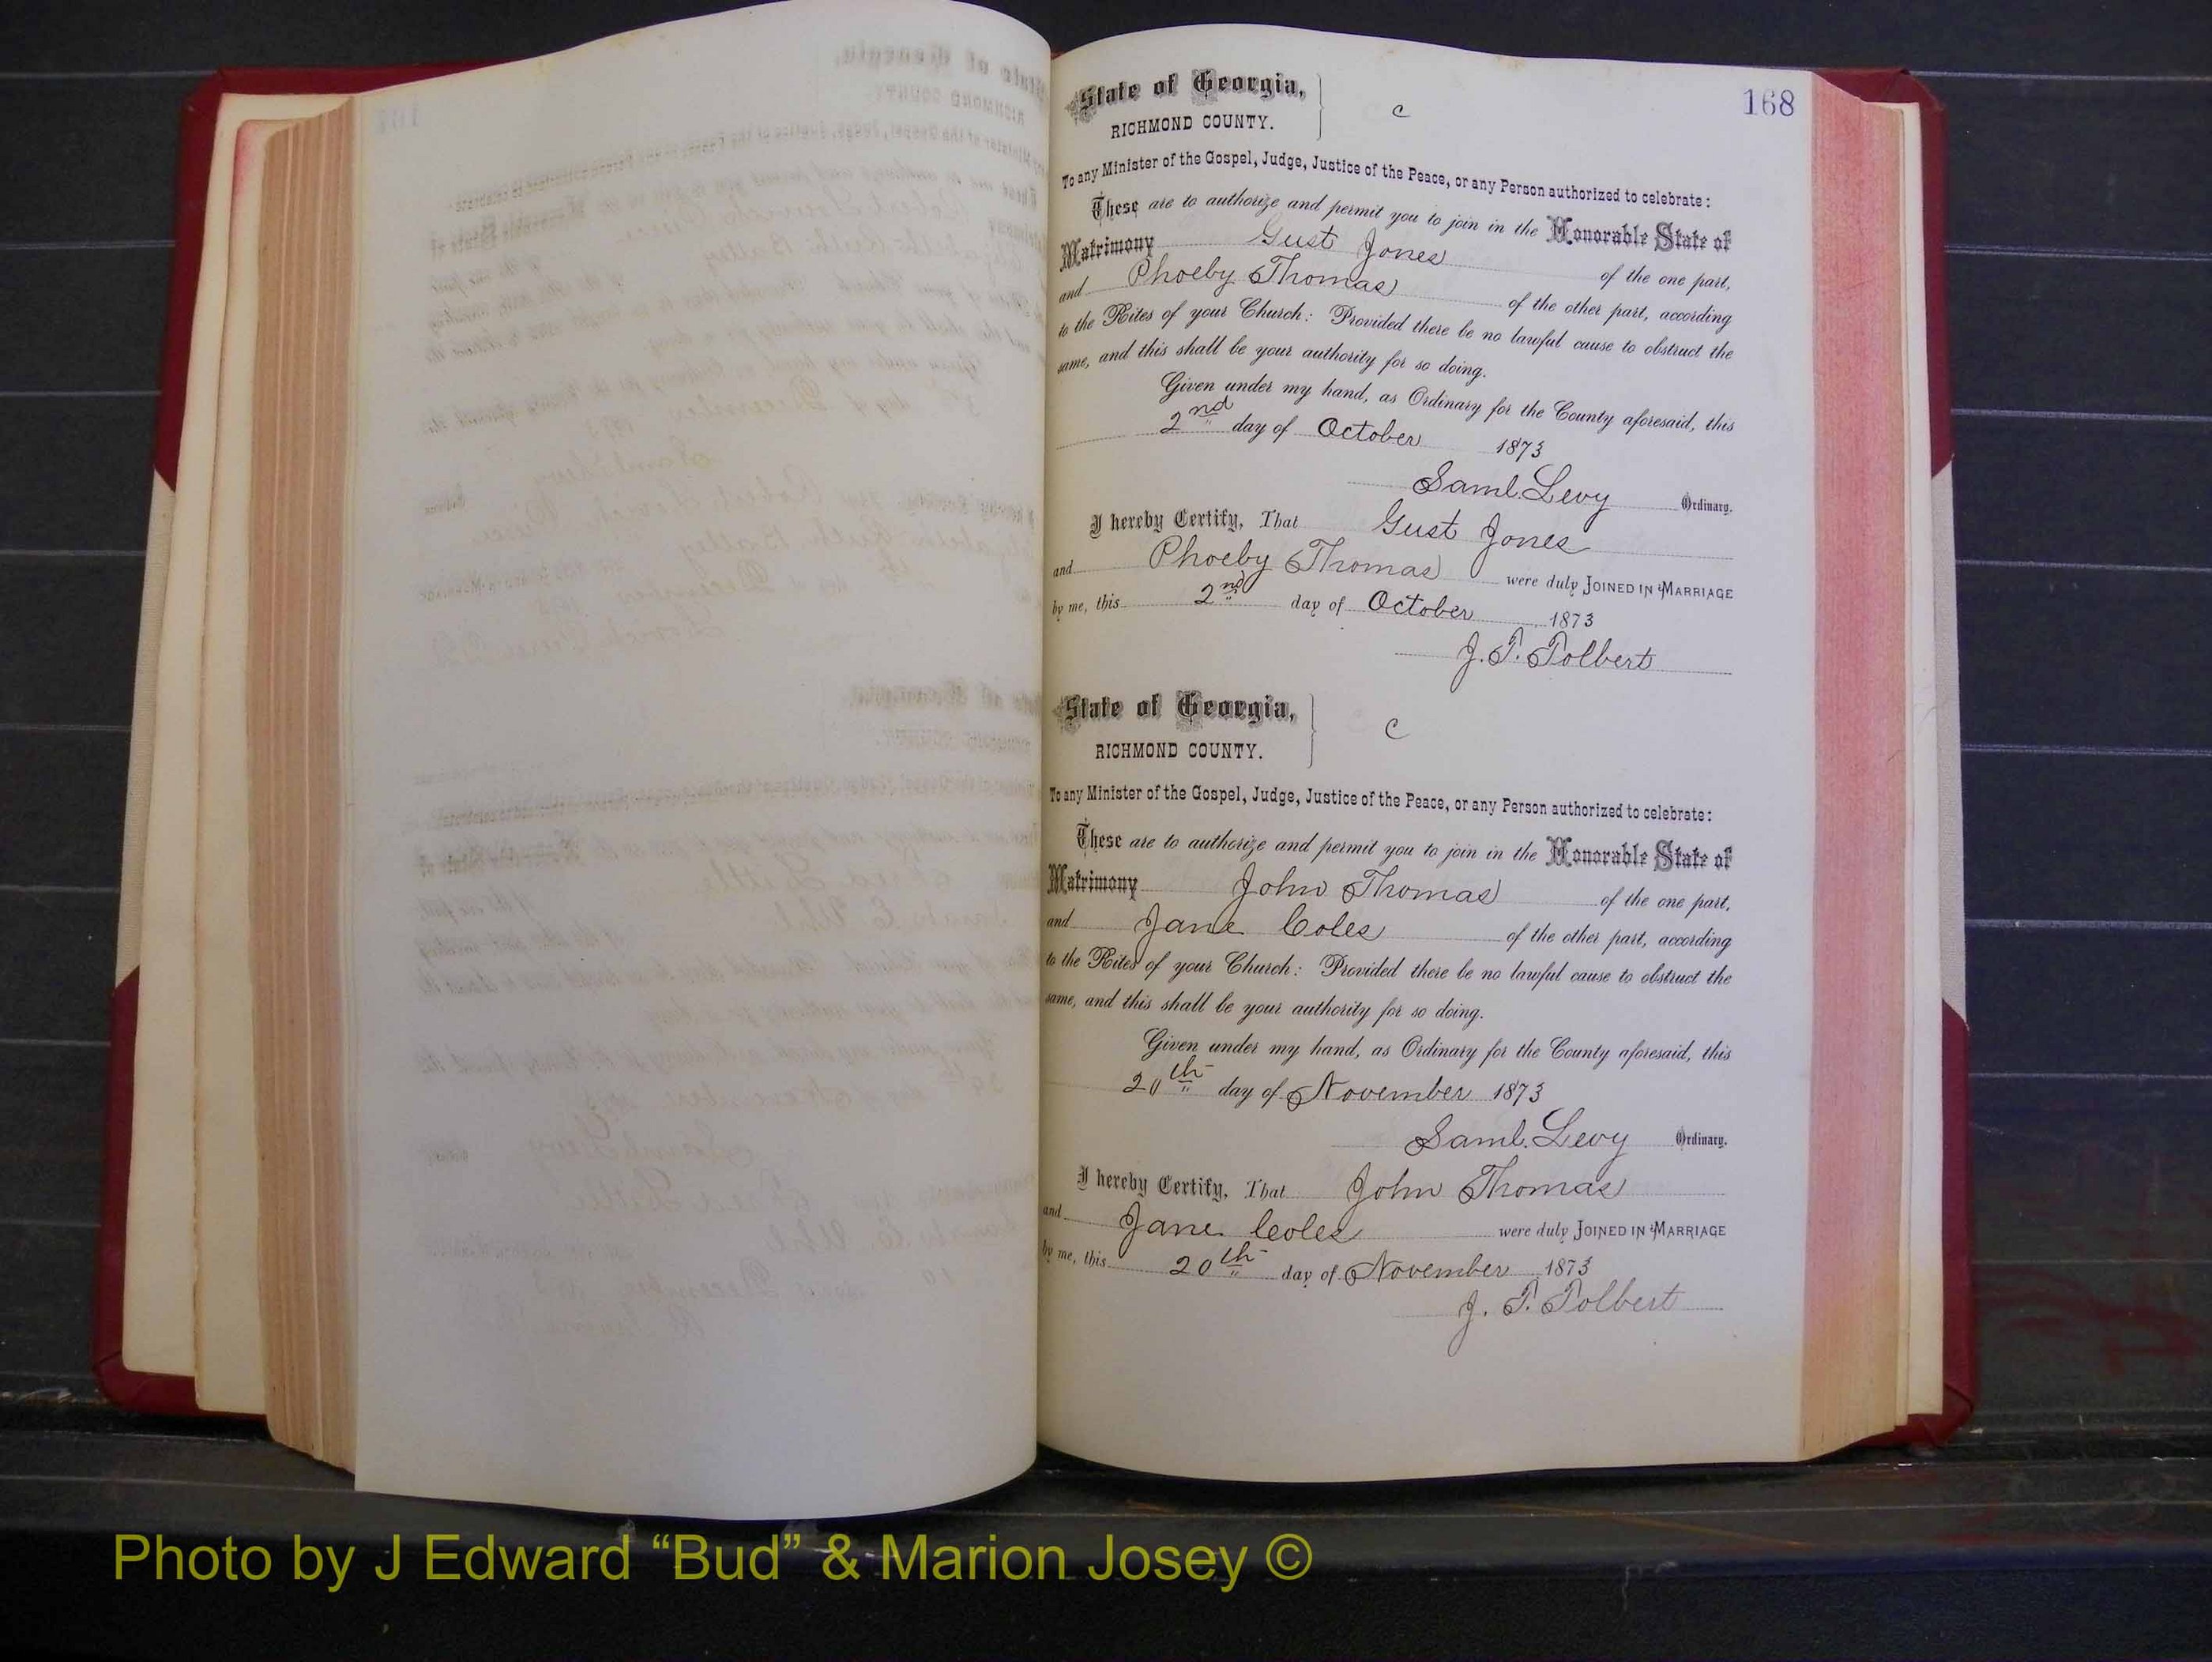 168
State of Georgia,
RICHMOND COUNTY.
c
To any Minister of the Gospel, Judge, Justice of the Peace, or any Person authorized to celebrate:
These are to authorize and permit you to join in the Honorable State of
Matrimony Gust Jones of the one part,
and Phoeby Thomas of the other part, according
to the Rites of your Church: Provided there be no lawful cause to obstruct the
same, and this shall be your authority for so doing.
Given under my hand, as Ordinary for the County aforesaid, this
2nd day of October 1873
Saml. Levy Ordinary.
I hereby Certify, That Gust Jones
and Phoeby Thomas were duly JOINED IN MARRIAGE
by me, this 2nd day of October 1873
J. T. Tolbert
State of Georgia,
RICHMOND COUNTY.
c
To any Minister of the Gospel, Judge, Justice of the Peace, or any Person authorized to celebrate:
These are to authorize and permit you to join in the Honorable State of
Matrimony John Thomas of the one part,
and Jane Coles of the other part, according
to the Rites of your Church: Provided there be no lawful cause to obstruct the
same, and this shall be your authority for so doing.
Given under my hand, as Ordinary for the County aforesaid, this
20th day of November 1873
Saml. Levy Ordinary.
I hereby Certify, That John Thomas
and Jane Coles were duly JOINED IN MARRIAGE
by me, this 20th day of November 1873
J. T. Tolbert
Photo by J Edward “Bud” & Marion Josey ©